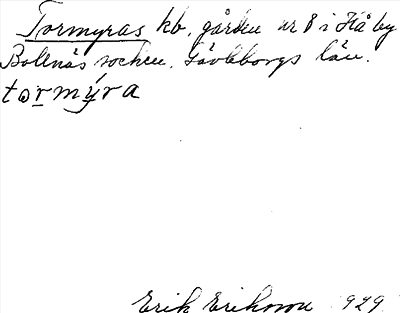 Tormyras kb. gården nr 8 i Hå by
Bollnäs socken. Gävleborgs län.
tormýra
Erik Eriksson 1929